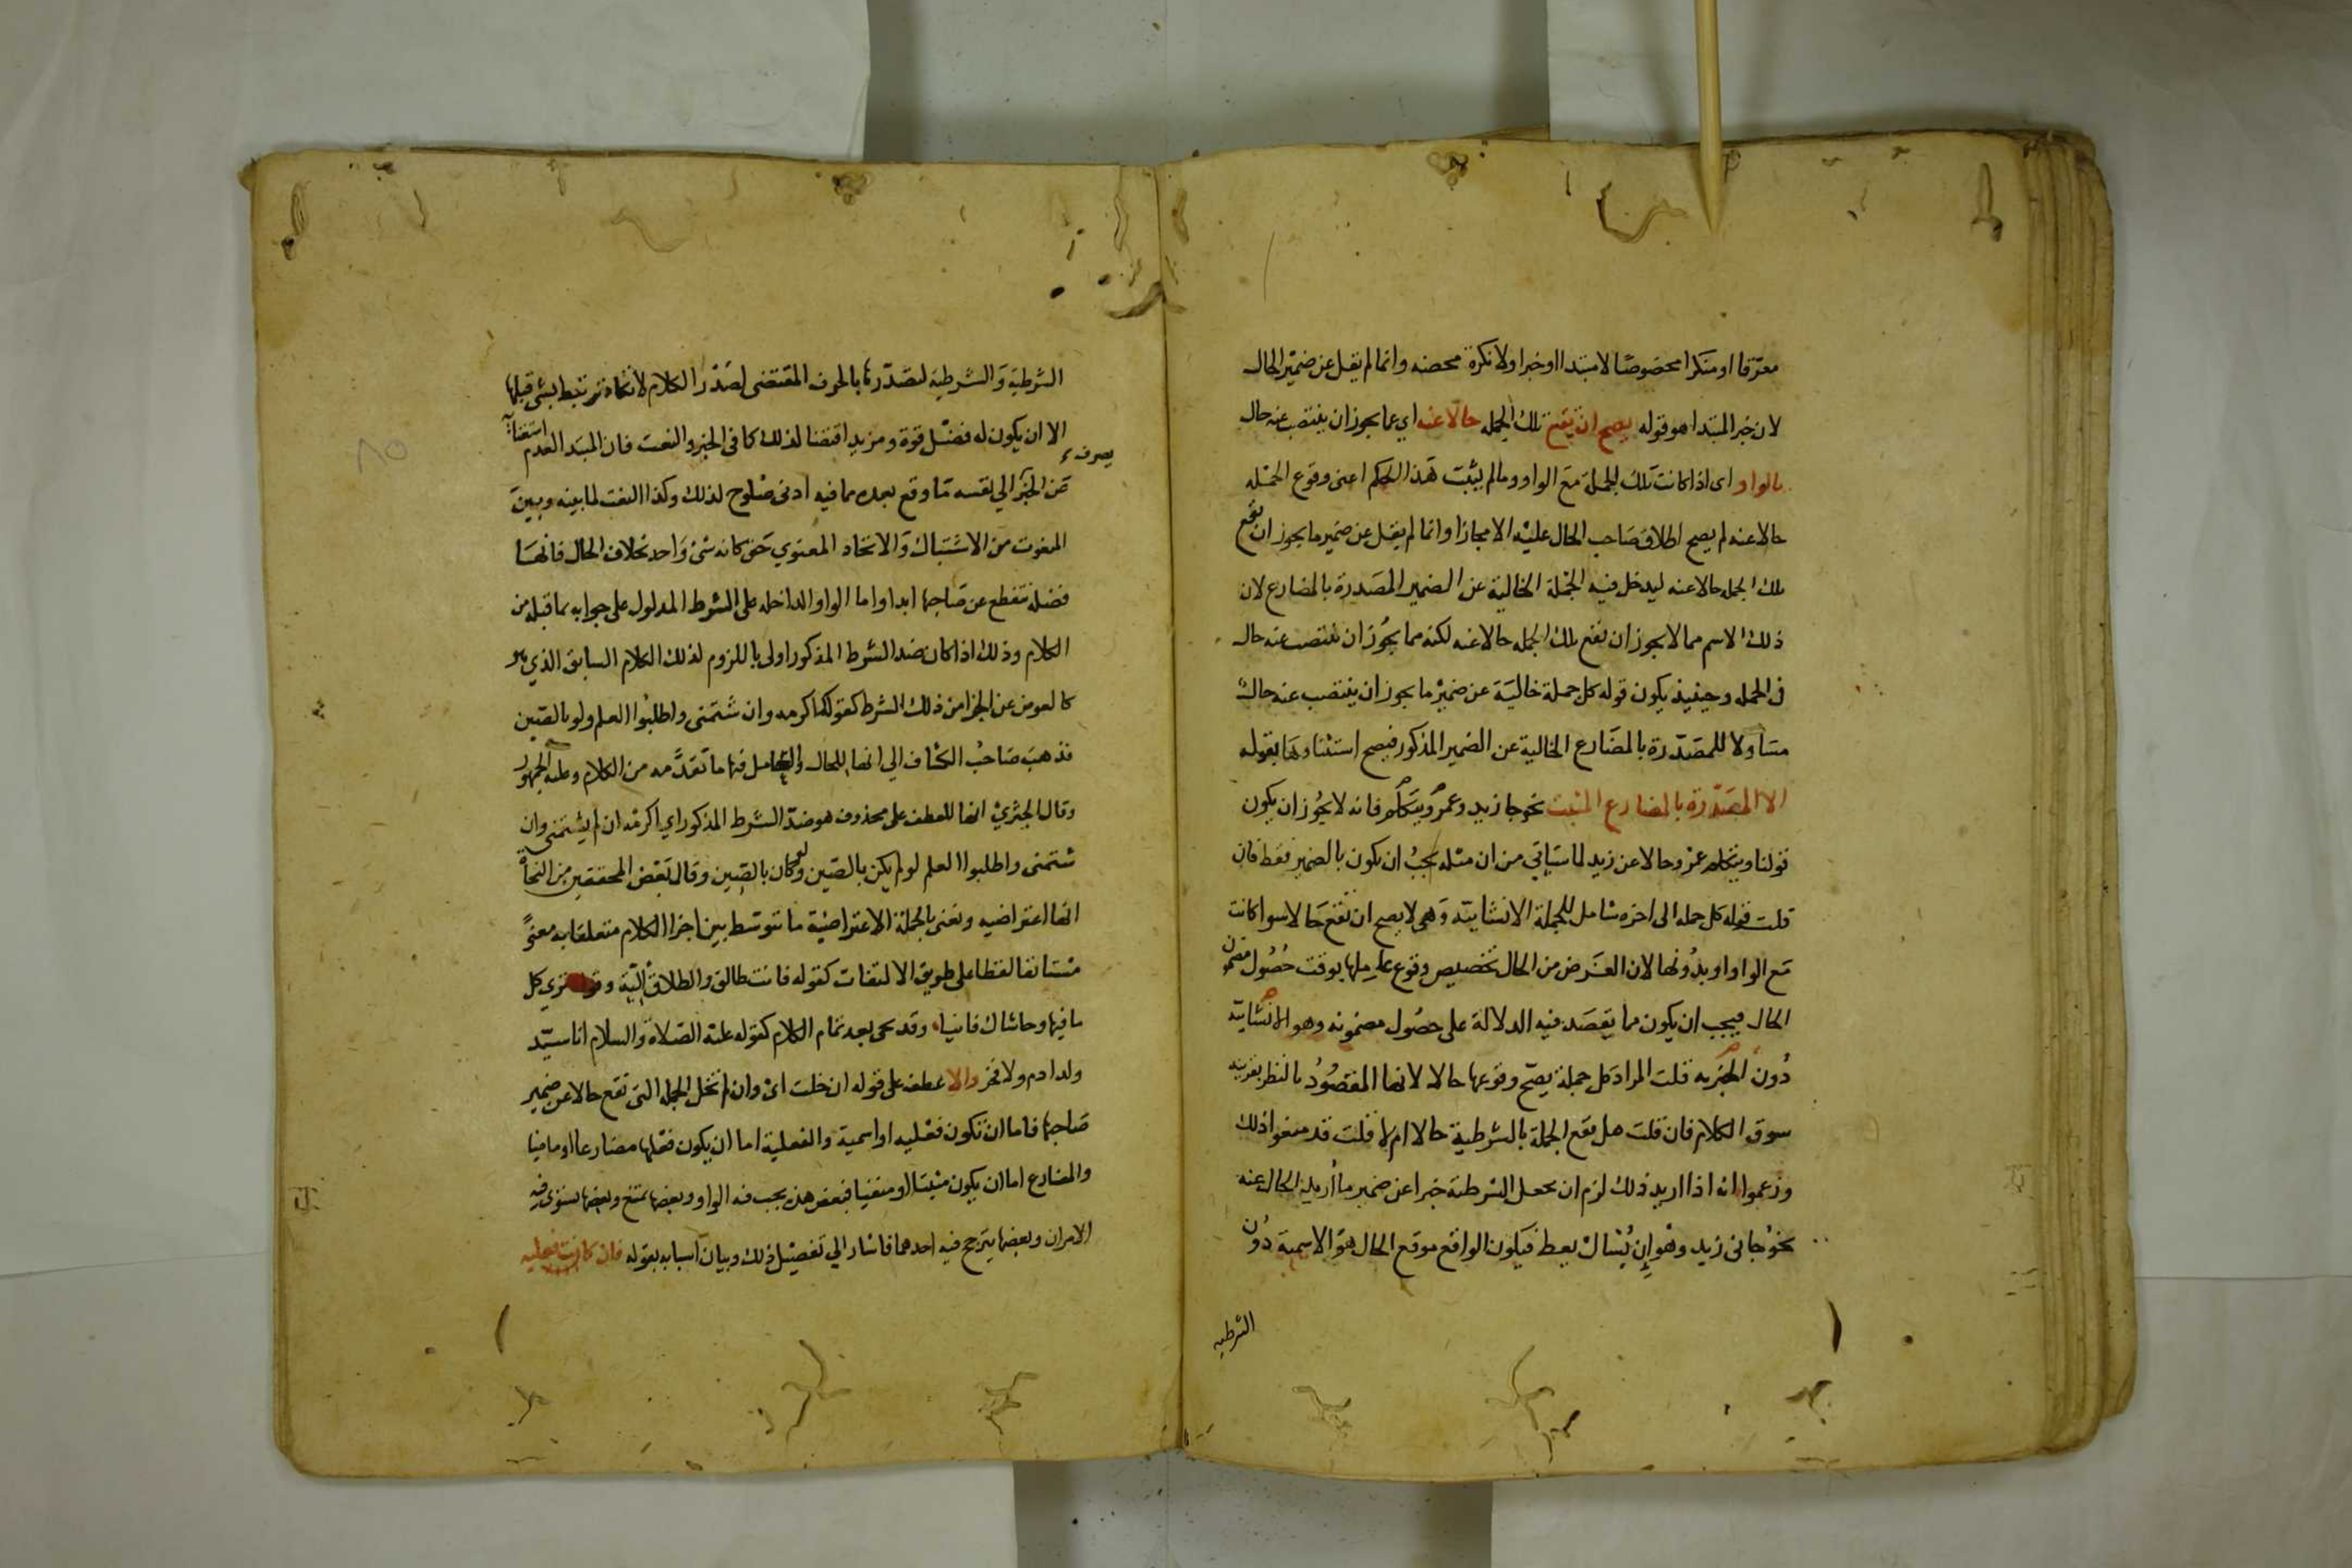 معرفا او منكرا مخصوصا لا مبتدا او خبرا ولا نكرة محضه وانما لم يقل عن ضمير الحال
لان خبر المبتدا هو قوله يصح ان يقع تلك الجمله حالا عنه اي عما يجوز ان ينتصب عنه حال
بالواو اى اذا كانت تلك الجملة مع الواو وما لم يثبت هذا الحكم اعنى وقوع الجمله
حالا عنه لم يصح اطلاق صاحب الحال عليه الا مجازا وانما لم يقل عن ضمير ما يجوز ان تقع
تلك الجمله حالا عنه ليدخل فيه الجملة الخالية عن الضمير المصدرة بالمضارع لان
ذلك الاسم مما لا يجوز ان تقع تلك الجمله حالا عنه لكنه مما يجوز ان ينتصب عنه حال
فى الجمله وحينيذ يكون قوله كل جملة خالية عن ضمير ما يجوز ان ينتصب عنه حال
متناولا للمصدرة بالمضارع الخالية عن الضمير المذكور فيصح استثناوها بقوله
الا المصدرة بالمضارع المثبت نحو جا زيد وعمرو يتكلم فانه لا يجوز ان يكون
قولنا ويتكلم عمرو حالا عن زيد لما سياتي من ان مثله يجب ان يكون بالضمير فقط فان
قلت قوله كل جمله الى اخره شامل للجملة الانشاييه وهي لا يصح ان تقع حالا سوا كانت
مع الواو او بدونها لان الغرض من الحال تخصيص وقوع عاملها بوقت حصول مضمون
الحال فيجب ان يكون مما يقصد فيه الدلالة على حصول مضمونه وهو الانشاييه
دون الخبريه قلت المراد كل جملة يصح وقوعها حالا لانها المقصود بالنظر بقرينه
سوق الكلام فان قلت هل تقع الجملة بالشرطية حالا ام لا قلت قد منعوا ذلك
وزعموا انه اذا اريد ذلك لزم ان تجعل الشرطية خبرا عن ضمير ما اريد الحال عنه
نحو جانى زيد وهو ان يسال يعط فيكون الواقع موقع الحال هو الاسمية دون
الشرطيه
الشرطية والشرطية لتصدرها بالحرف المقتضى لصدر الكلام لا تكاد ترتبط بشى قبلها
الا ان يكون له فضل قوة ومزيد اقتضا لذلك كما فى الخبر والنعت فان المبتدا لعدم استغنائه
عن الخبر يصرف الي نفسه ما وقع بعده مما فيه ادنى صلوح لذلك وكذا النعت لما بينه وبين
المنعوت من الاشتباك والاتحاد المعنوي حتى كانه شى واحد بخلاف الحال فانها
فضلة تنقطع عن صاحبها ابدا واما الواو الداخله على الشرط المدلول على جوابه بما قبله من
الكلام وذلك اذا كان ضد الشرط المذكور اولى باللزوم لذلك الكلام السابق الذي هو
كالعوض عن الجزا من ذلك الشرط كقولك اكرمه وان شتمنى واطلبوا العلم ولو بالصين
فذهب صاحب الكشاف الي انها للحال والعامل فيها ما تقدمه من الكلام وعليه الجمهور
وقال الجنزي انها للعطف على محذوف هو ضد الشرط المذكور اي اكرمه ان لم يشتمنى وان
شتمنى واطلبوا العلم لو لم يكن بالصين ولو كان بالصين وقال بعض المحققين من النحاة
انها اعتراضيه ونعنى بالجملة الاعتراضية ما تتوسط بين اجزا الكلام متعلقا به معنى
مستانفا لفظا على طريق الالتفات كقوله فانت طالق والطلاق الية وقوله ترى كل
ما فيها وحاشاك فانيا وقد يجى بعد تمام الكلام كقوله عليه الصلاة والسلام انا سيد
ولد ادم ولا فخر والا عطف على قوله ان خلت اى وان لم تخل الجملة التى تقع حالا عن ضمير
صاحبها فاما ان تكون فعليه او اسمية والفعلية اما ان يكون فعلها مضارعا او ماضيا
والمضارع اما ان يكون مثبتا او منفيا فبعض هذه يجب فيه الواو وبعضها يمتنع وبعضها يستوى فيه
الامران وبعضها يترجح فيه احدهما فاشار الي تفصيل ذلك وبيان اسبابه بقوله فان كانت فعليه